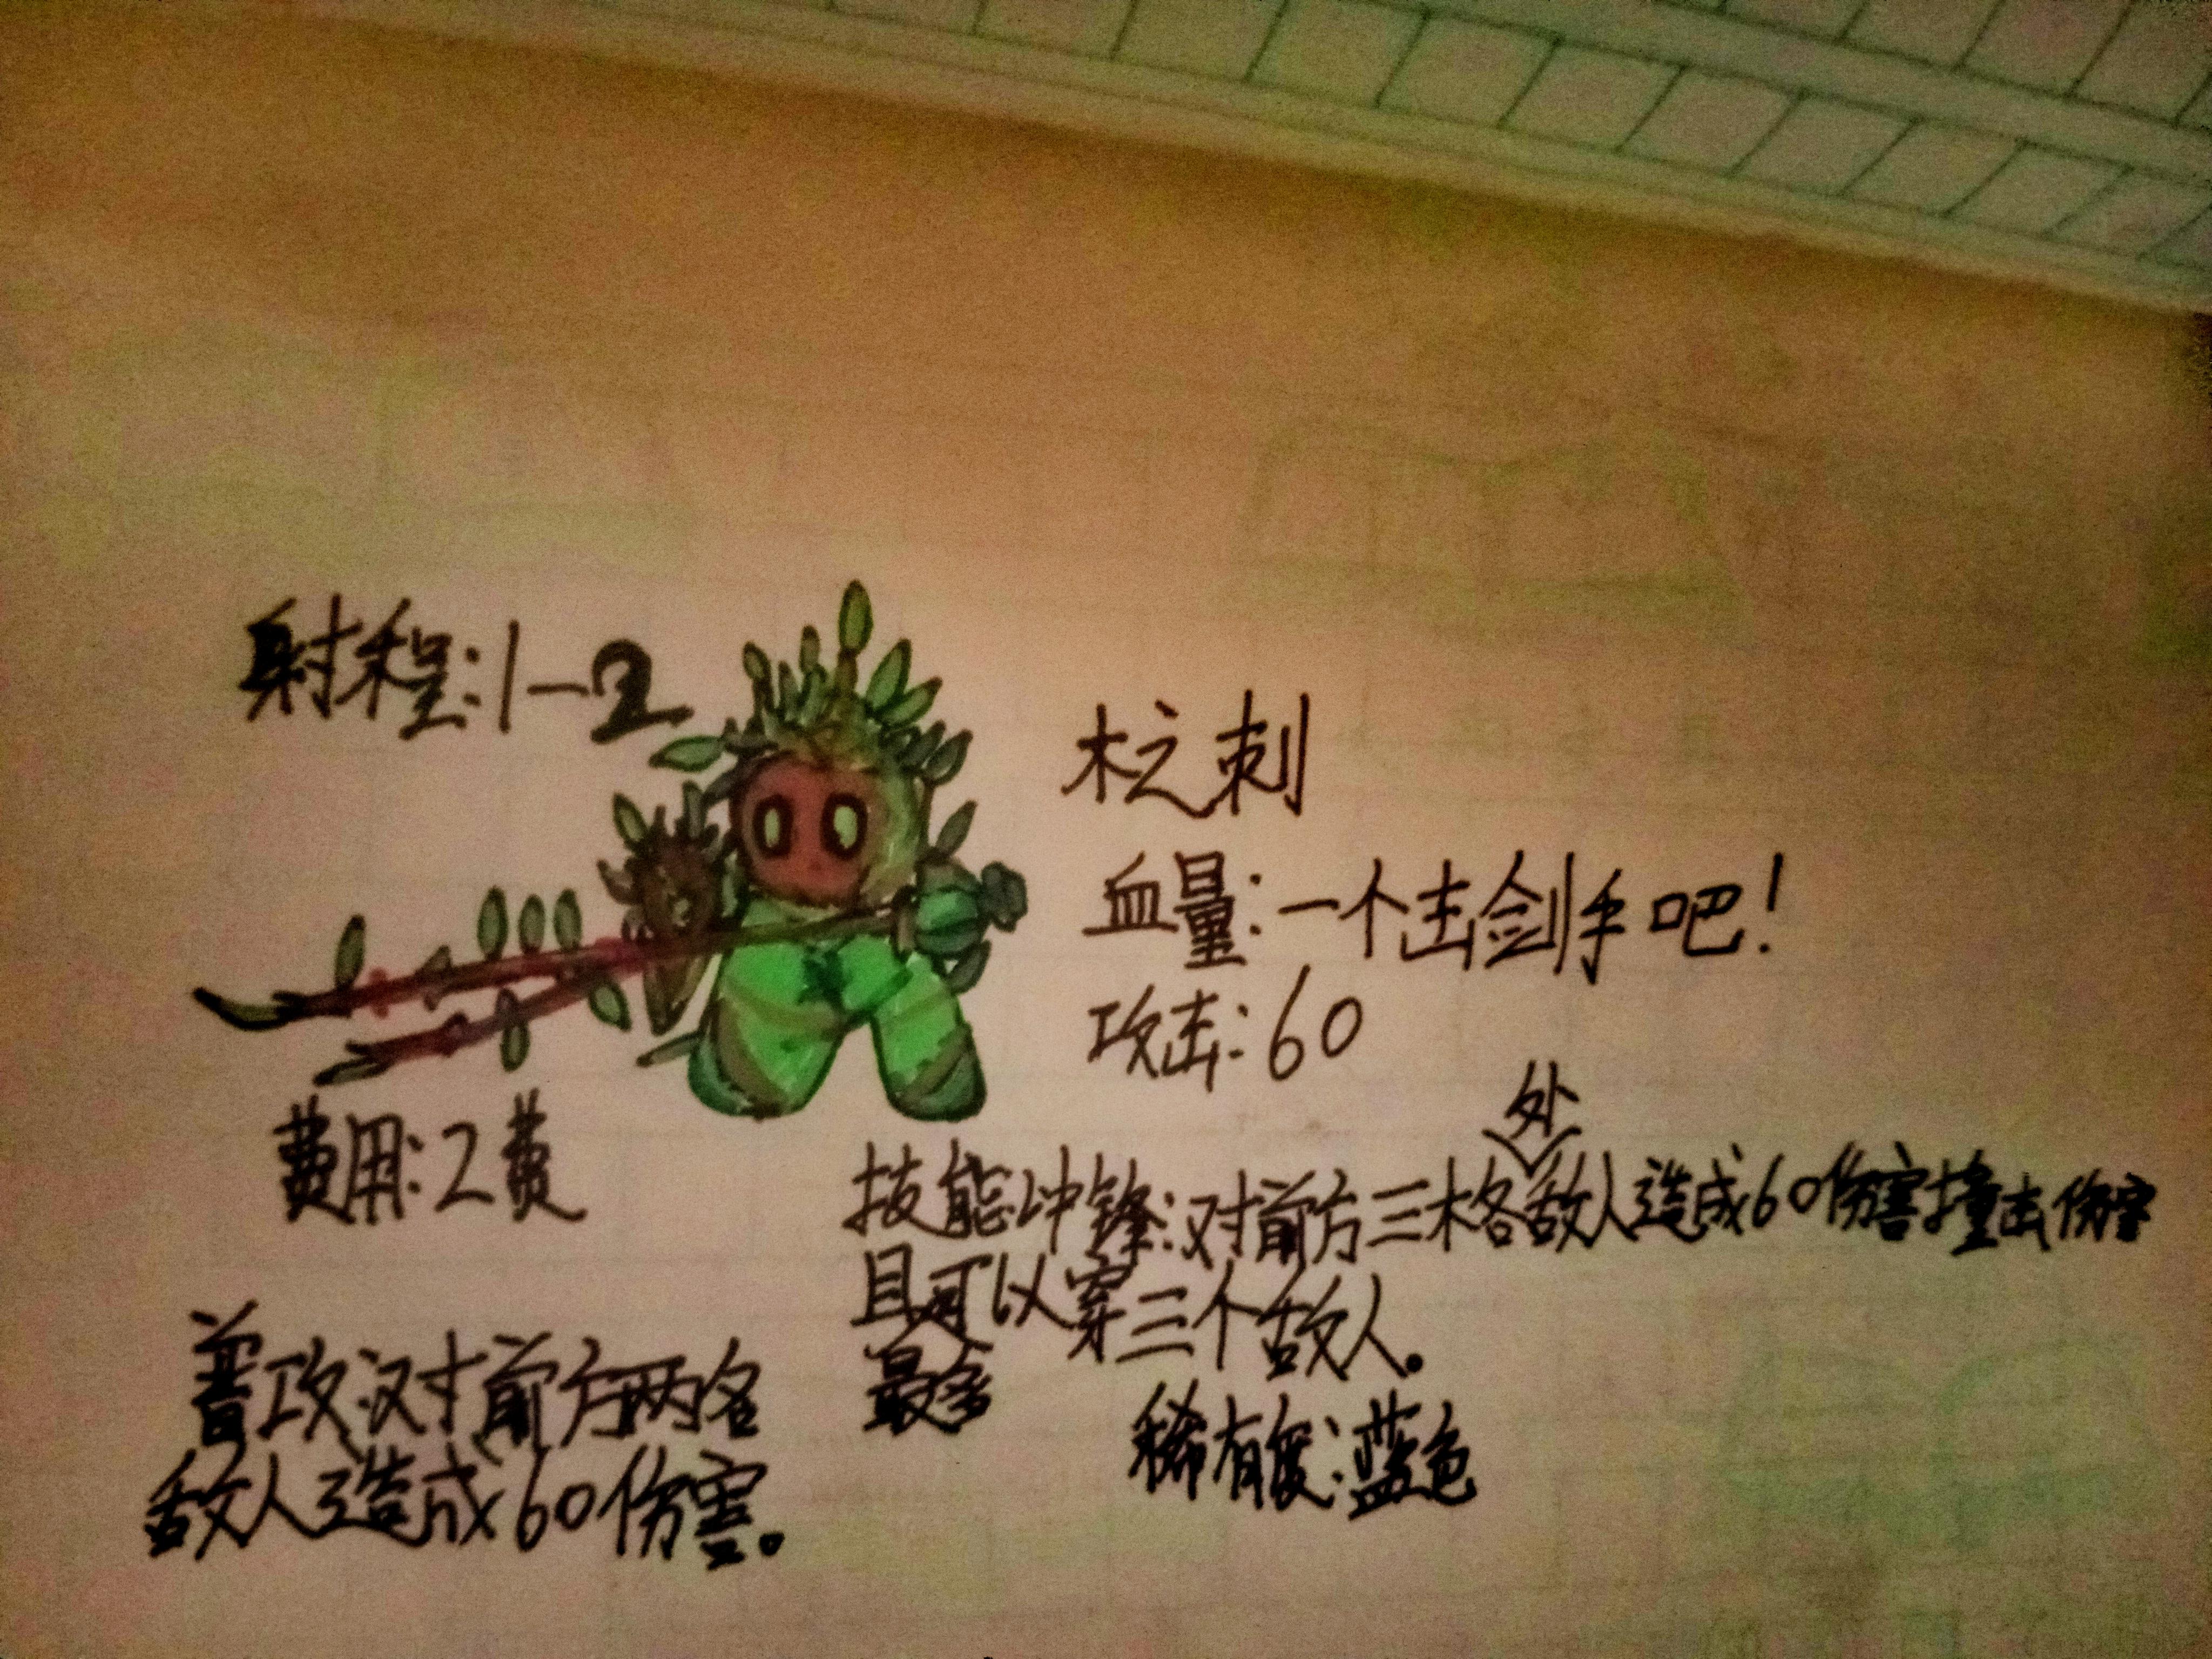 射程:1-2
木之刺
血量:一个击剑手吧!
攻击:60
费用:2费
处
技能冲锋:对前方三格敌人造成60伤害撞击伤害
且可以穿三个敌人。
最多
普攻:对前方两名
敌人造成60伤害。
稀有度:蓝色